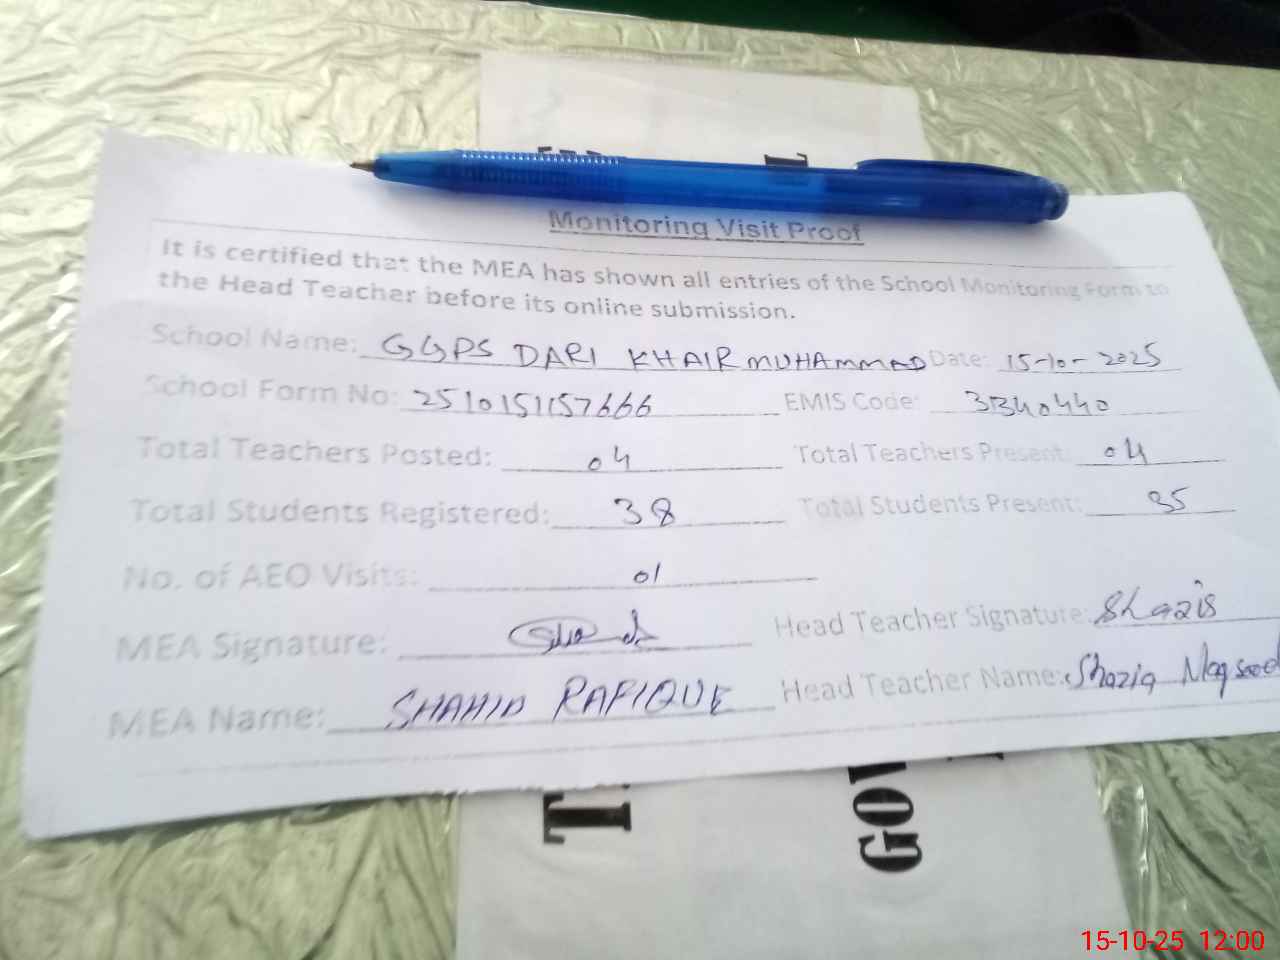 Monitoring Visit Proof
It is certified that the MEA has shown all entries of the School Monitoring Form to
the Head Teacher before its online submission.
School Name: GGPS DARI KHAIR MUHAMMAD Date: 15-10-2025
School Form No: 2510151157666 EMIS Code: 31340440
Total Teachers Posted: 04 Total Teachers Present: 04
Total Students Registered: 38 Total Students Present: 35
No. of AEO Visits: 01
MEA Signature: Head Teacher Signature: Shazia
MEA Name: SHAHID RAFIQUE Head Teacher Name: Shazia Maqsood
T
GOV
15-10-25 12:00